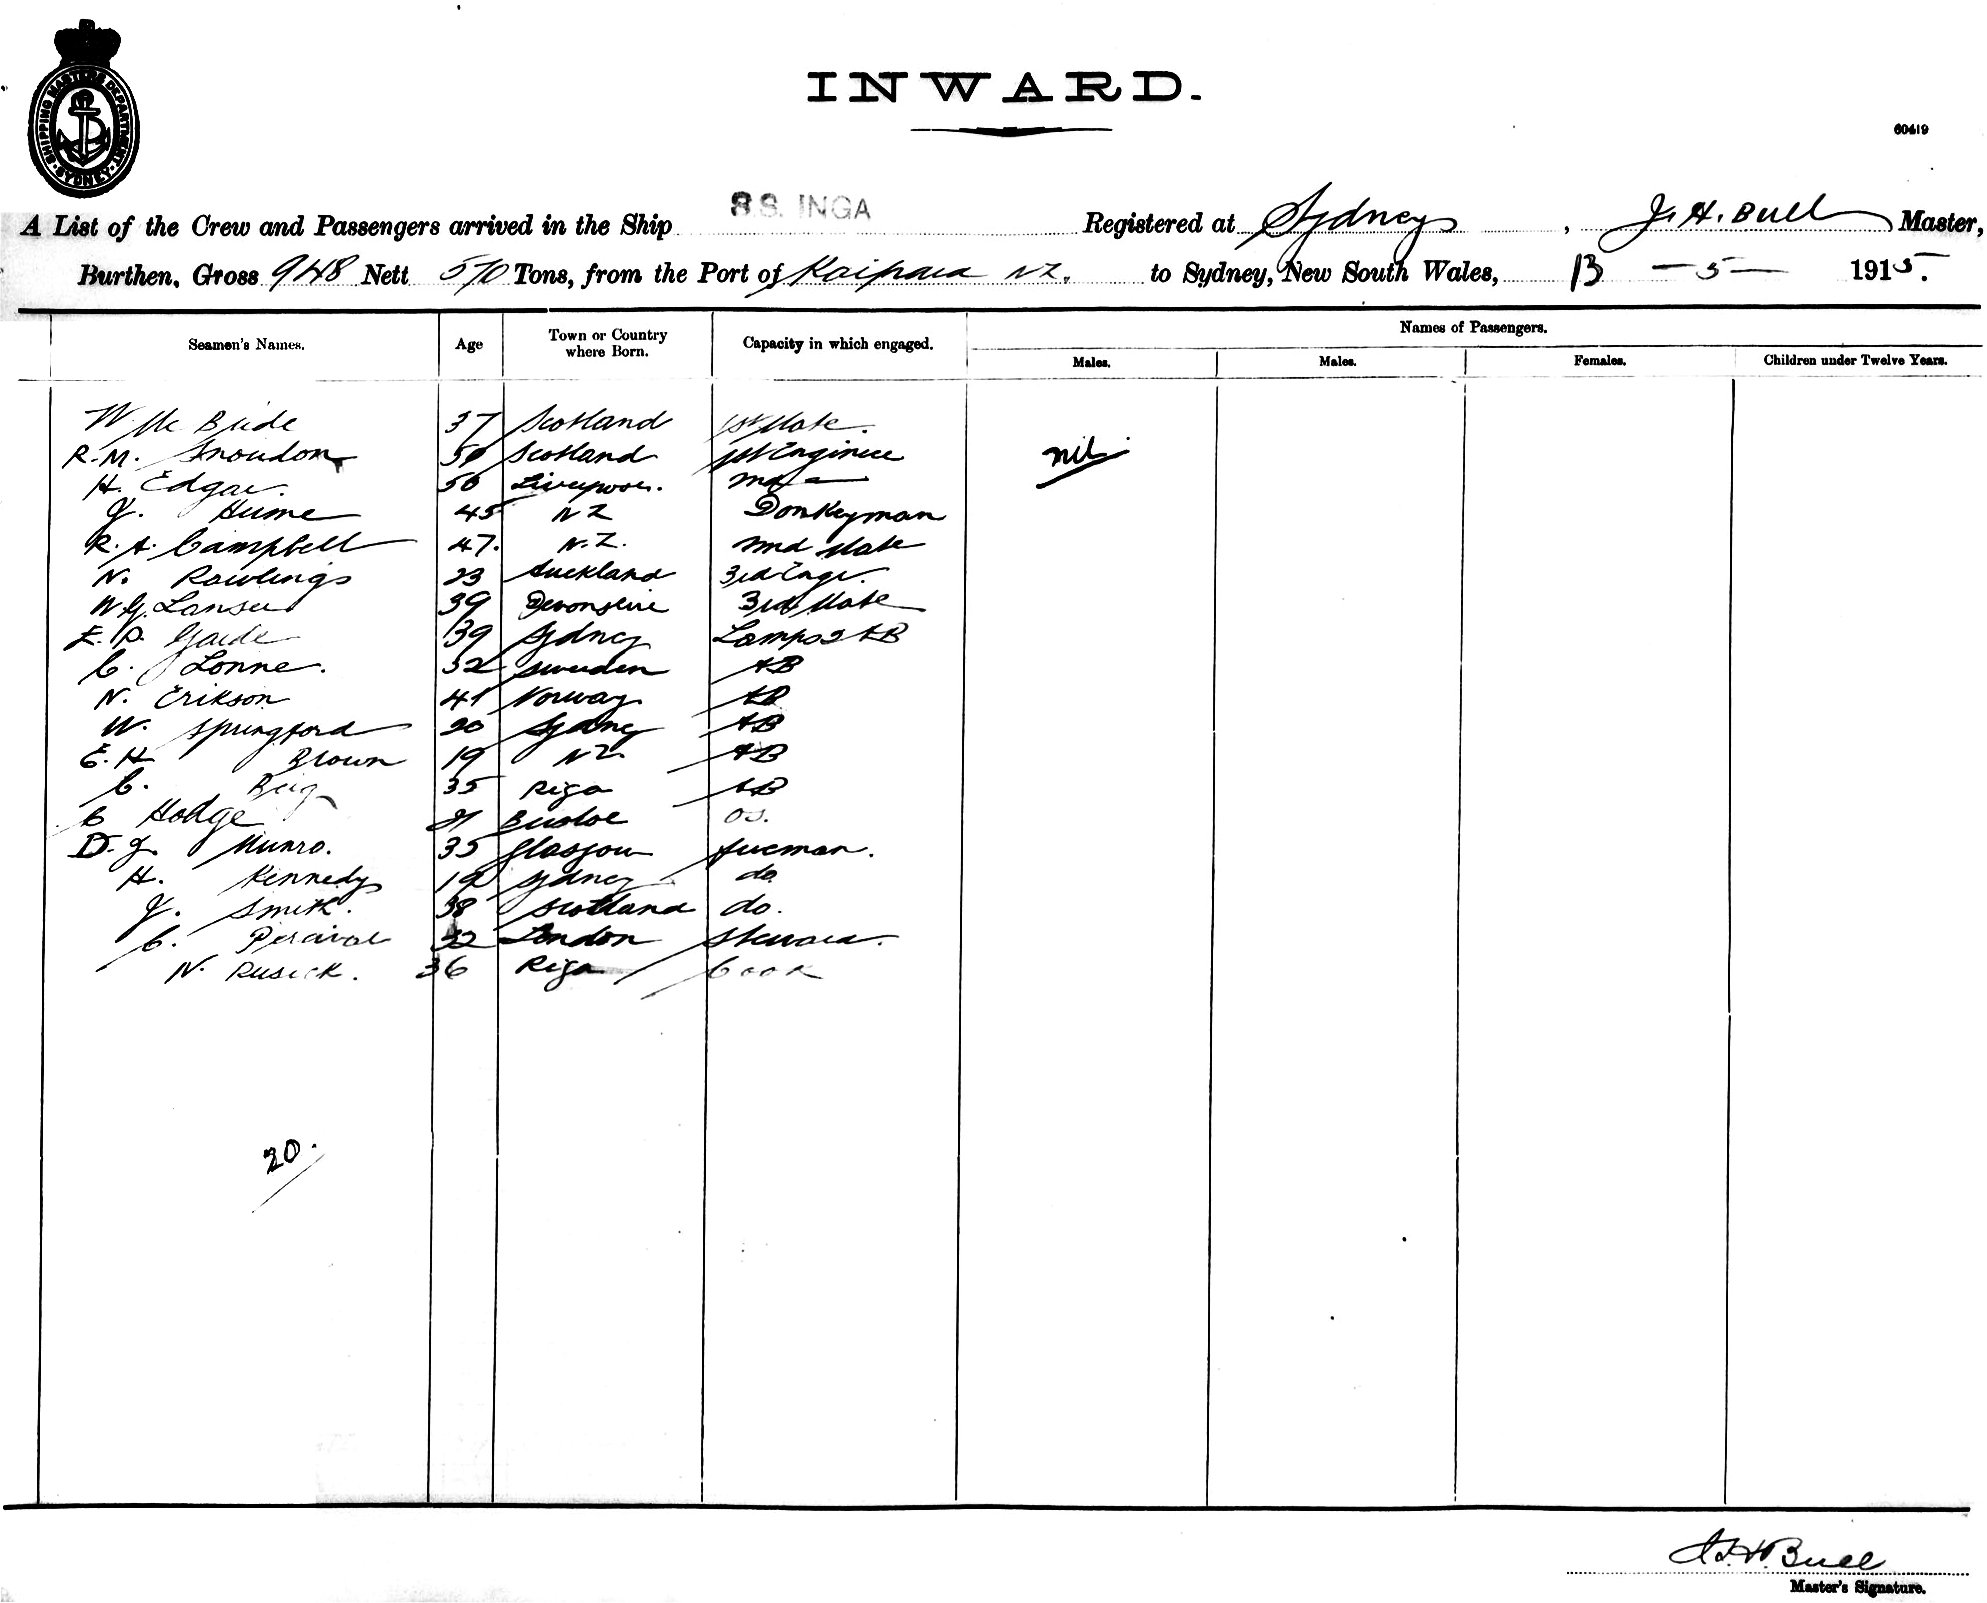 SHIPPING MASTERS DEPARTMENT
SYDNEY
INWARD.
60419
A List of the Crew and Passengers arrived in the Ship S.S. INGA Registered at Sydney, J. H. Bull Master,
Burthen, Gross 948 Nett 570 Tons, from the Port of Kaipara NZ. to Sydney, New South Wales, 13 - 5 - 1915.
Seamen's Names. Age Town or Country where Born. Capacity in which engaged. Names of Passengers.
Males. Males. Females. Children under Twelve Years.
W Mc Bride 37 Scotland 1st Mate.
R. M. Snoudon Scotland 1st Engineer nil
H. Edgar. 50 Liverpool.
J. Hume 45 NZ Donkeyman
R. A. Campbell 47. N.Z. 2nd Mate
N. Rawlings 23 Auckland 3rd Engr.
W G. 39 Devonshire 3rd Mate
E. P. 39 Sydney Lamps & AB
C. Lonne. 32 Sweden AB
N. Erikson 41 Norway AB
W. Springford 20 Sydney AB
E. H Brown 19 NZ AB
C. Berg 35 Riga AB
C Hodge 21 OS.
D. J. Munro. 35 Glasgow fireman.
H. Kennedy 19 Sydney do
J. Smith. 38 Scotland do.
C. Percival 32 London Steward.
N. Rusick. 36 Riga Cook
20.
J. H. Bull
Master's Signature.